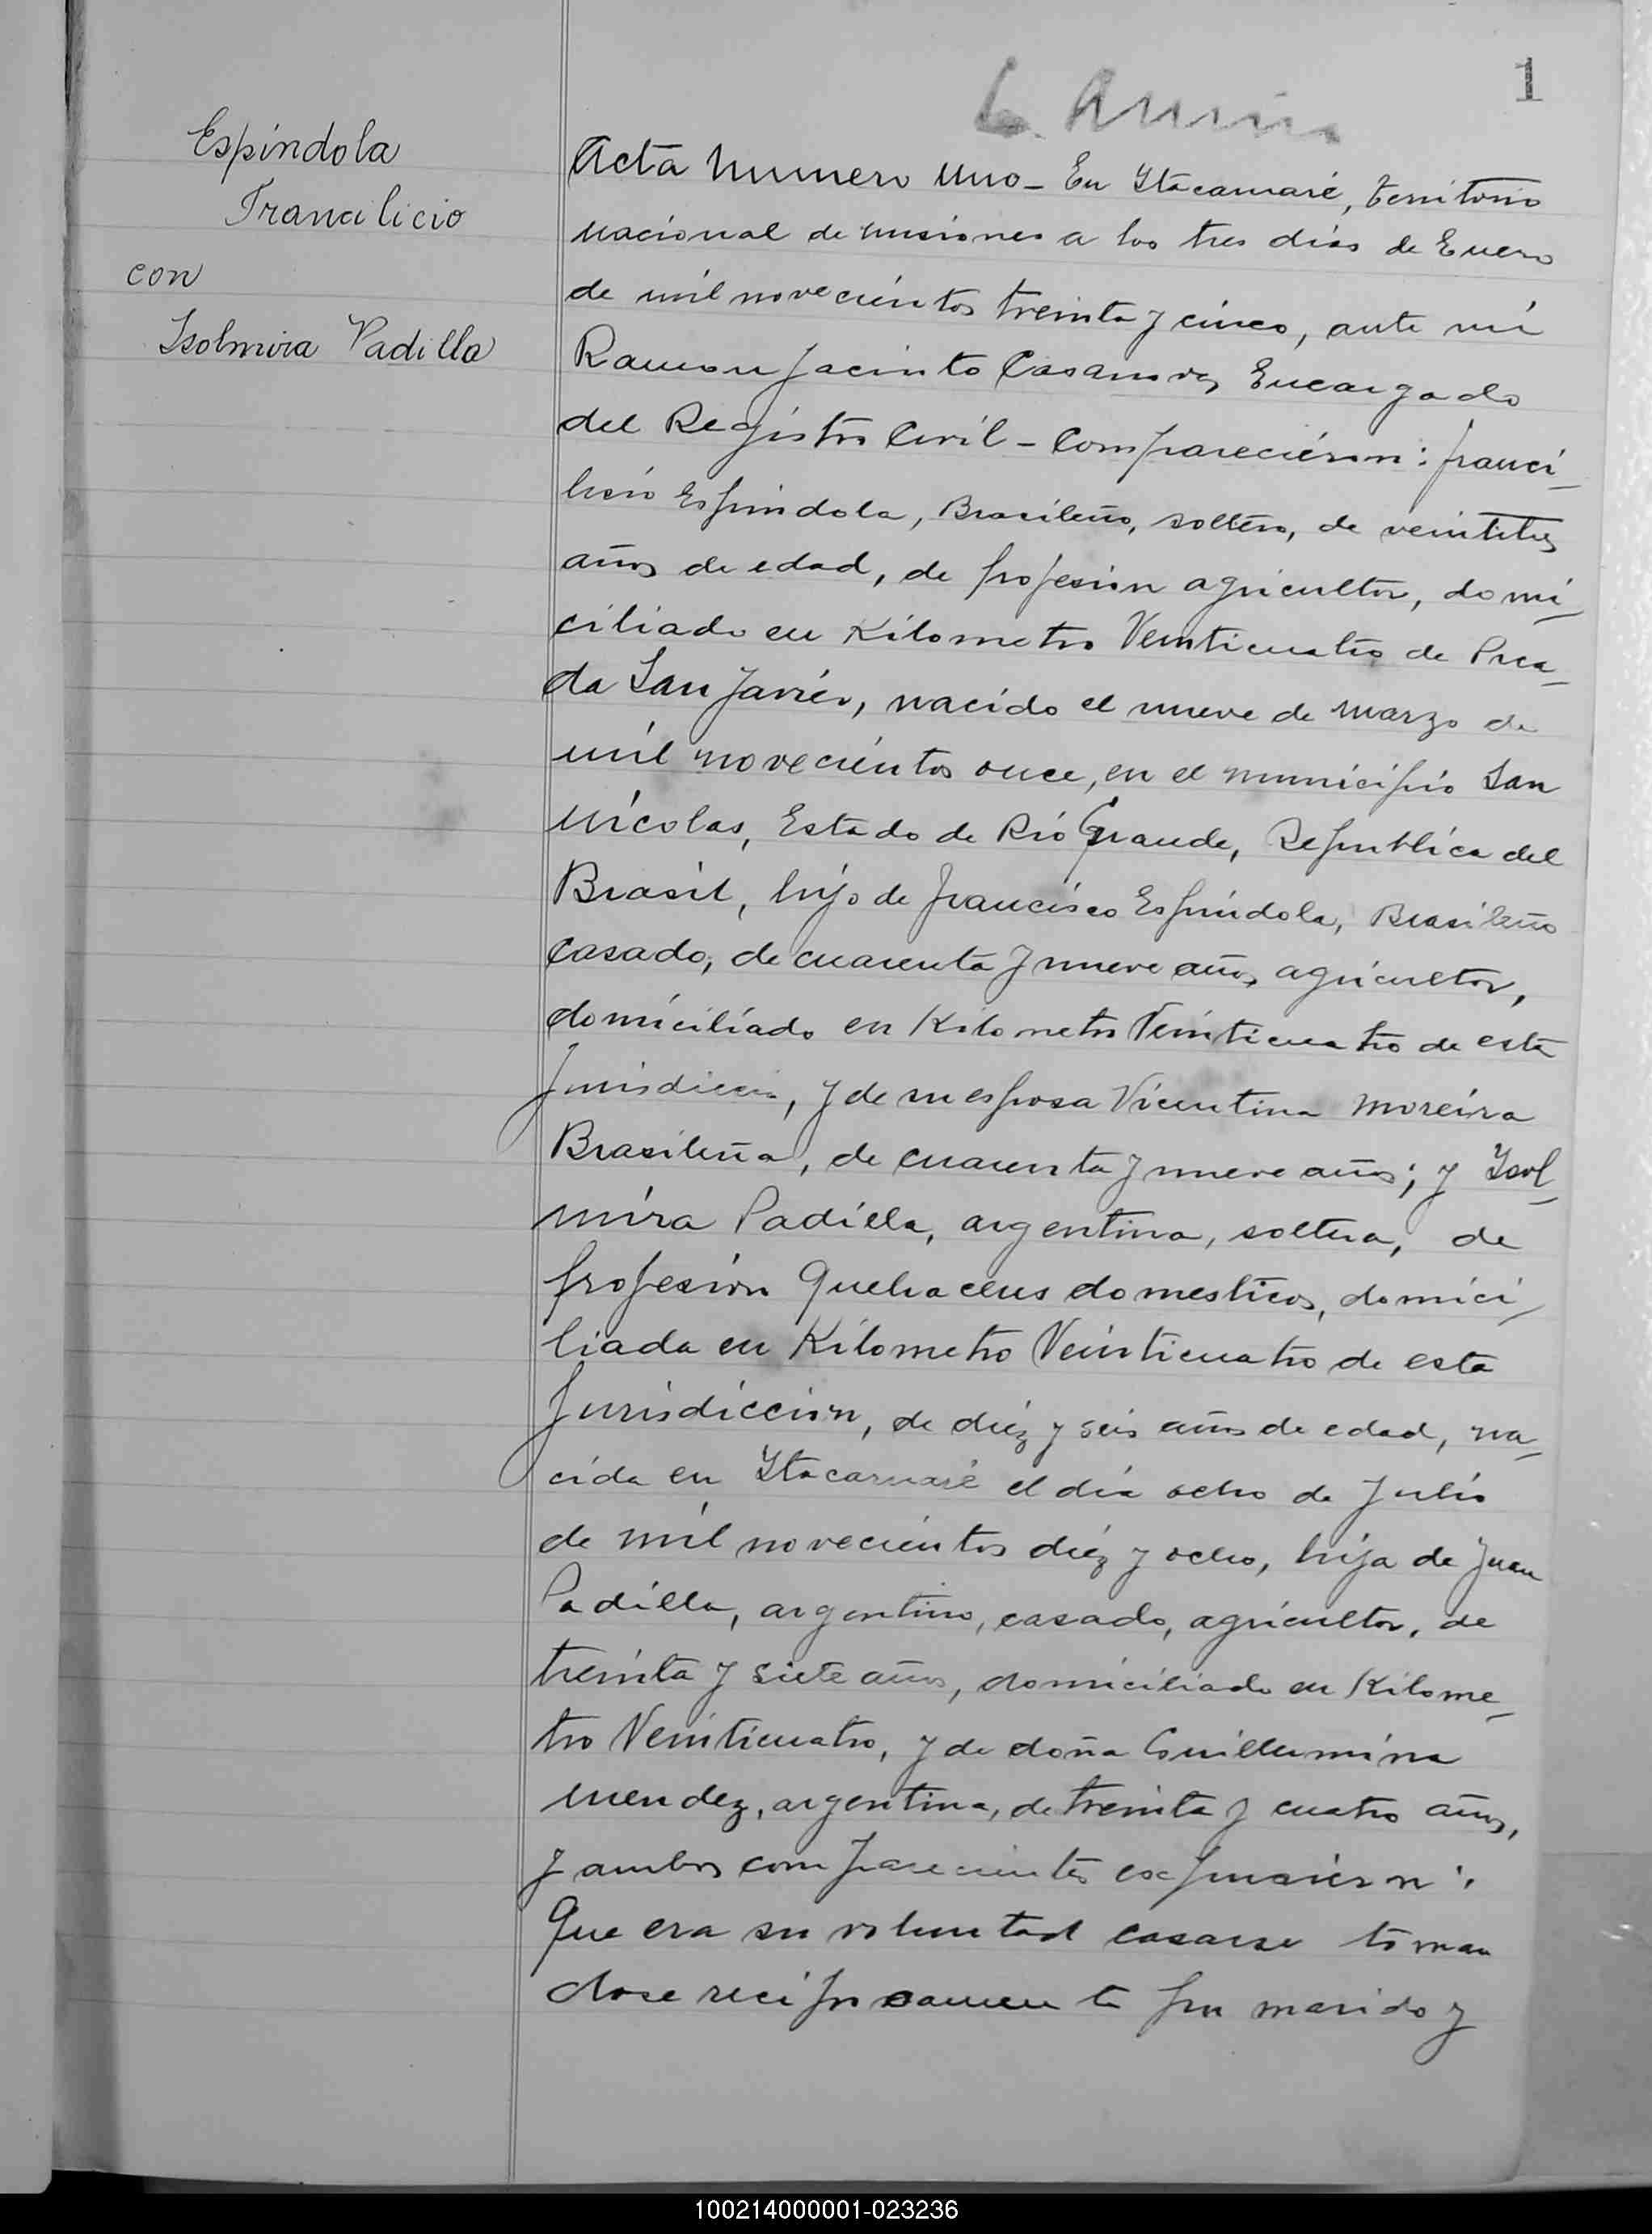 1
Espíndola
Francilicio
con
Isolmira Padilla
Acta Numero Uno - En Itacaruaré, territorio
nacional de Misiones a los tres días de Enero
de mil novecientos treinta y cinco, ante mí
Ramon Jacinto Casanova, Encargado
del Registro Civil - Comparecieron: Franci-
licio Espindola, Brasileño, soltero, de veintitres
años de edad, de profesion agricultor, domi-
ciliado en Kilometro Veinticuatro de Pica-
da San Javier, nacido el nueve de Marzo de
mil novecientos once, en el municipio San
Nicolas, Estado de Rio Grande, Republica del
Brasil, hijo de Francisco Espíndola, Brasileño
Casado, de cuarenta y nueve años, agricultor,
domiciliado en Kilometro Veinticuatro de esta
Jurisdiccion, y de su esposa Vicentina Moreira
Brasileña, de cuarenta y nueve años; y Isol-
mira Padilla, argentina, soltera, de
profesion Quehaceres domesticos, domici-
liada en Kilometro Veinticuatro de esta
Jurisdiccion, de diez y seis años de edad, na-
cida en Itacaruaré el día ocho de Julio
de mil novecientos diez y ocho, hija de Juan
Padilla, argentino, casado, agricultor, de
treinta y siete años, domiciliado en Kilome-
tro Veinticuatro, y de doña Guillermina
Mendez, argentina, de treinta y cuatro años,
y ambos comparecientes expusieron:
Que era su voluntad casarse toman
dose reciprocamente por marido y
100214000001-023236